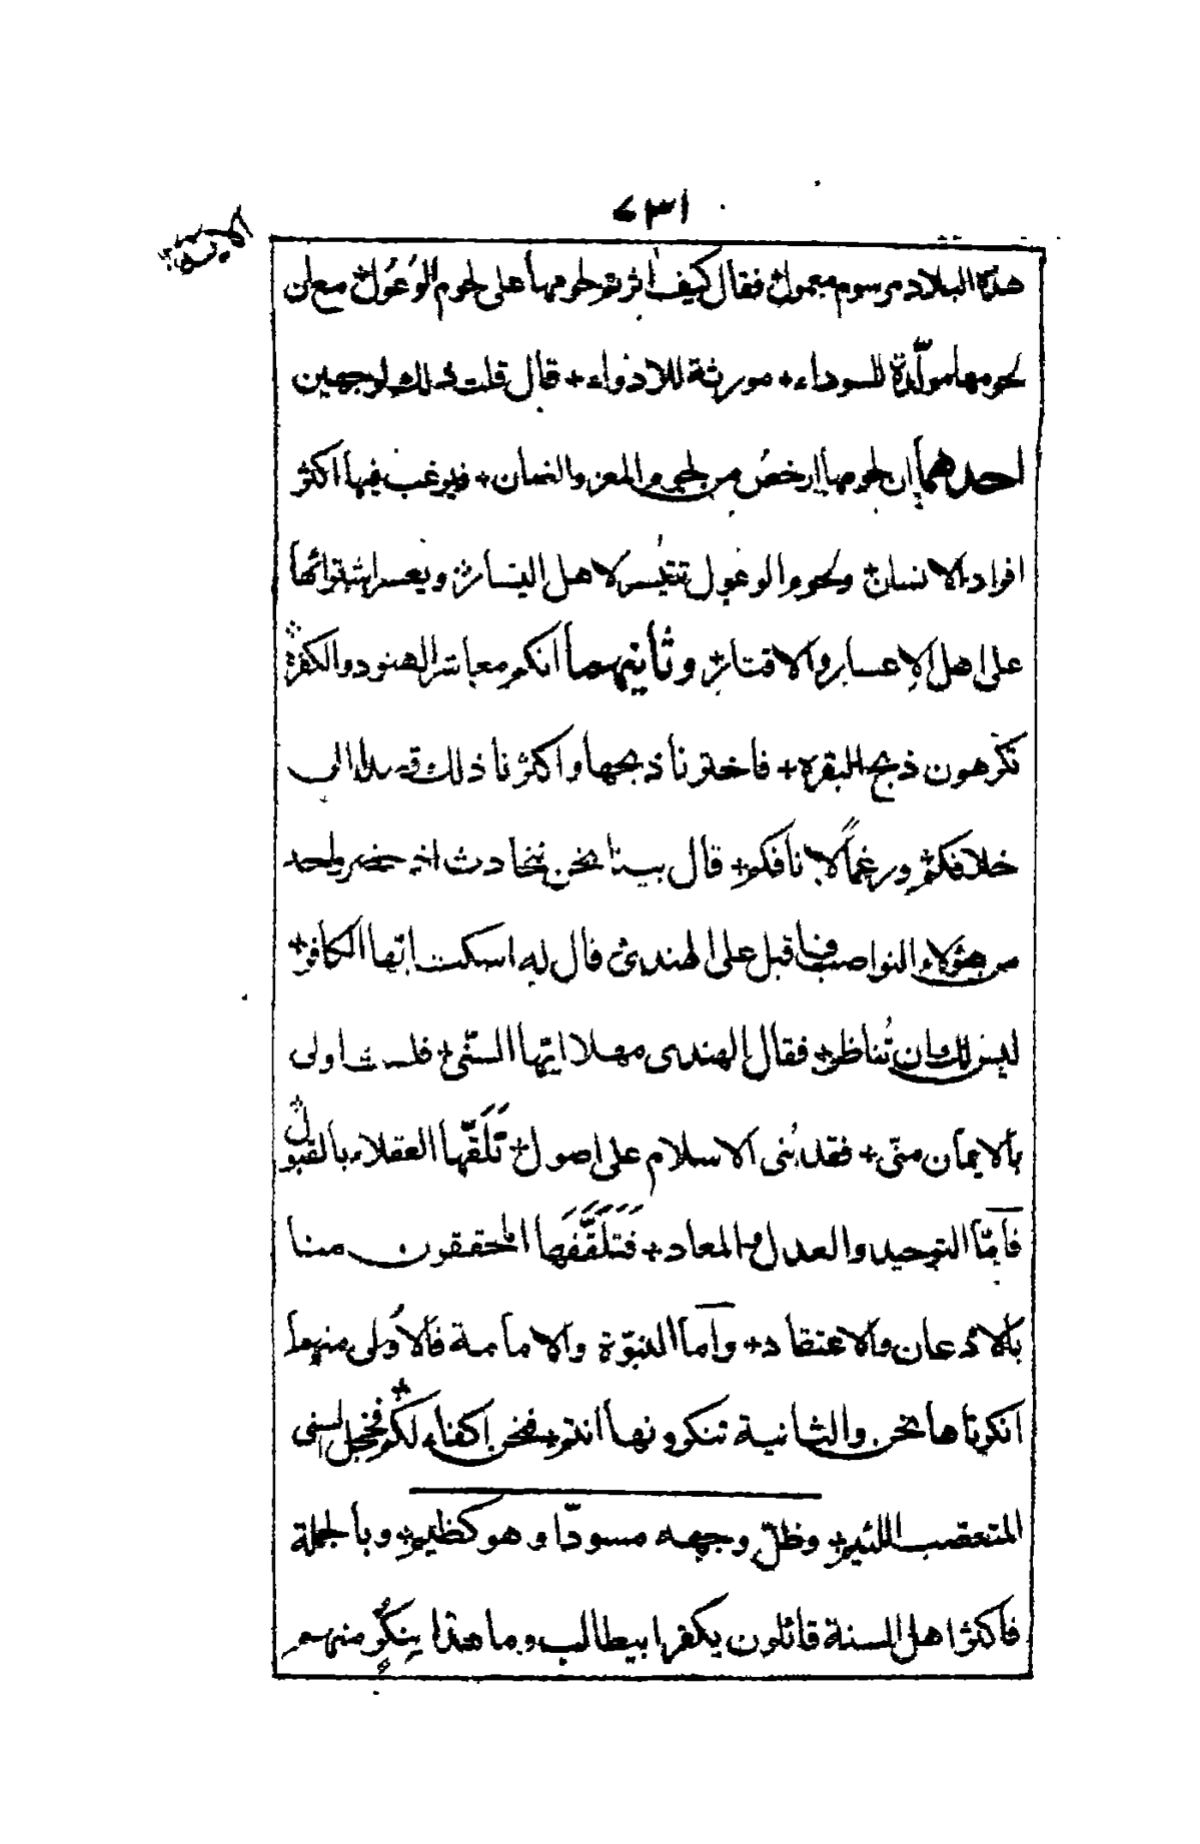 ١٣٧
هذه البلاد مرسوم معمول فقال كيف اثرتم لحومها على لحوم الوُعُول مع ان
لحومها مولّدة للسوداء + مورثة للادواء + قال قلت ذلك لوجهين
احدهما ان لحومها ارخص من لحمي المعز والضأن + فيرغب فيها اكثر
افراد الانسان + ولحوم الوعول تتيسر لاهل اليسار + ويعسر اشترائها
على اهل الاعسار والاقتار + وثانيهما انكم معاشر الهنود والكفرة +
تكرهون ذبح البقره + فاخترنا ذبحها واكثرنا ذلك قصدا الى
خلافكم + ورغماً لانافكم + قال بينا نحن نتحادث اذ حضر واحد
من هؤلاء النواصب فاقبل على الهندي + قال له اسكت ايّها الكافر +
ليس لك ان تُناظر + فقال الهندى مهلا ايّها السنّى + فلست اولى
بالايمان منّى + فقد بُنى الاسلام على اصول + تَلَقّٰها العقلاء بالقبول +
فامّا التوحيد والعدل والمعاد + فَتَلَقَّفَهَا المحققون منا
بالاذعان والاعتقاد + وامّا النبوّة والامامة فالاُولى منهما
انكرناها نحن والثانية تنكرونها انتم + فنحن اكفاء لكم + فخجل السنى
المتعصب اللئيم + وظلّ وجهه مسودّا وهو كظيم + وبالجملة
فاكثر اهل السنة قائلون بكفر ابيطالب وما هذا بِنكرٍ منهم